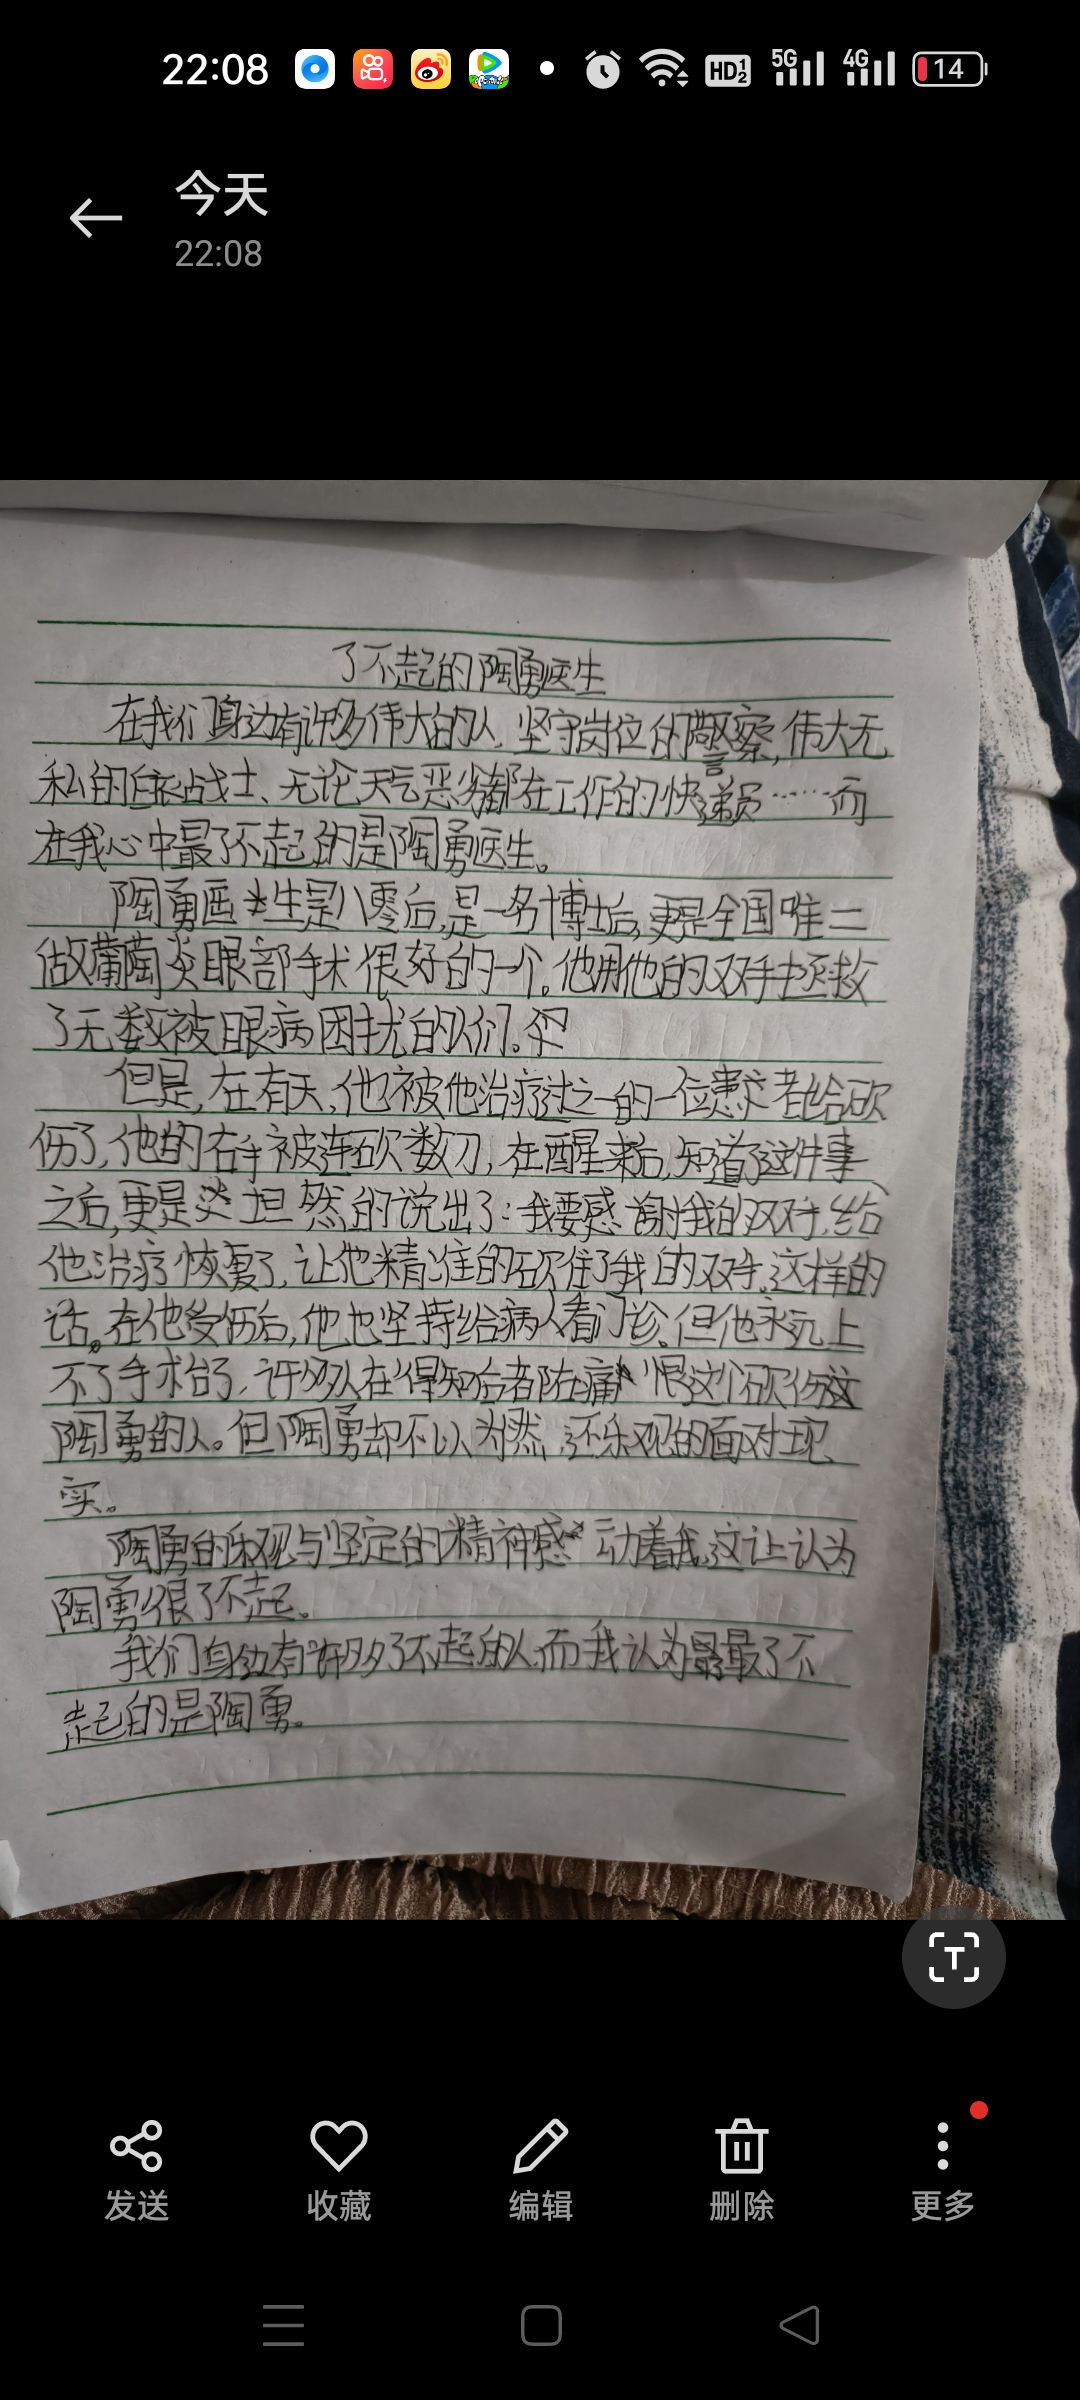 22:08
HD12
5G
4G
14
今天
22:08
了不起的陶勇医生
在我们身边有许多伟大的人，坚守岗位的警察，伟大无
私的白衣战士、无论天气恶劣都在工作的快递员……而
在我心中最了不起的是陶勇医生。
陶勇医生是八零后，是一名博士后，更是全国唯二
做葡萄炎眼部手术很好的一个。他用他的双手拯救
了无数被眼病困扰的人们。
但是，在有天，他被他治疗过之一的一位患者给砍
伤了，他的右手被连砍数刀，在醒来后，知道了这件事
之后，更是坦然的说出了：我要感谢我的双手，给
他治疗恢复了，让他精准的砍住了我的双手，这样的
话。在他受伤后，他也坚持给病人看门诊。但他永远上
不了手术台了，许多人在得知后者陈痛恨这个砍伤这
陶勇的人。但陶勇却不以为然，还乐观的面对现
实。
陶勇的乐观与坚定的精神感动着我，这让认为
陶勇很了不起。
我们身边有许多了不起的人，而我认为最了不
起的是陶勇。
发送
收藏
编辑
删除
更多